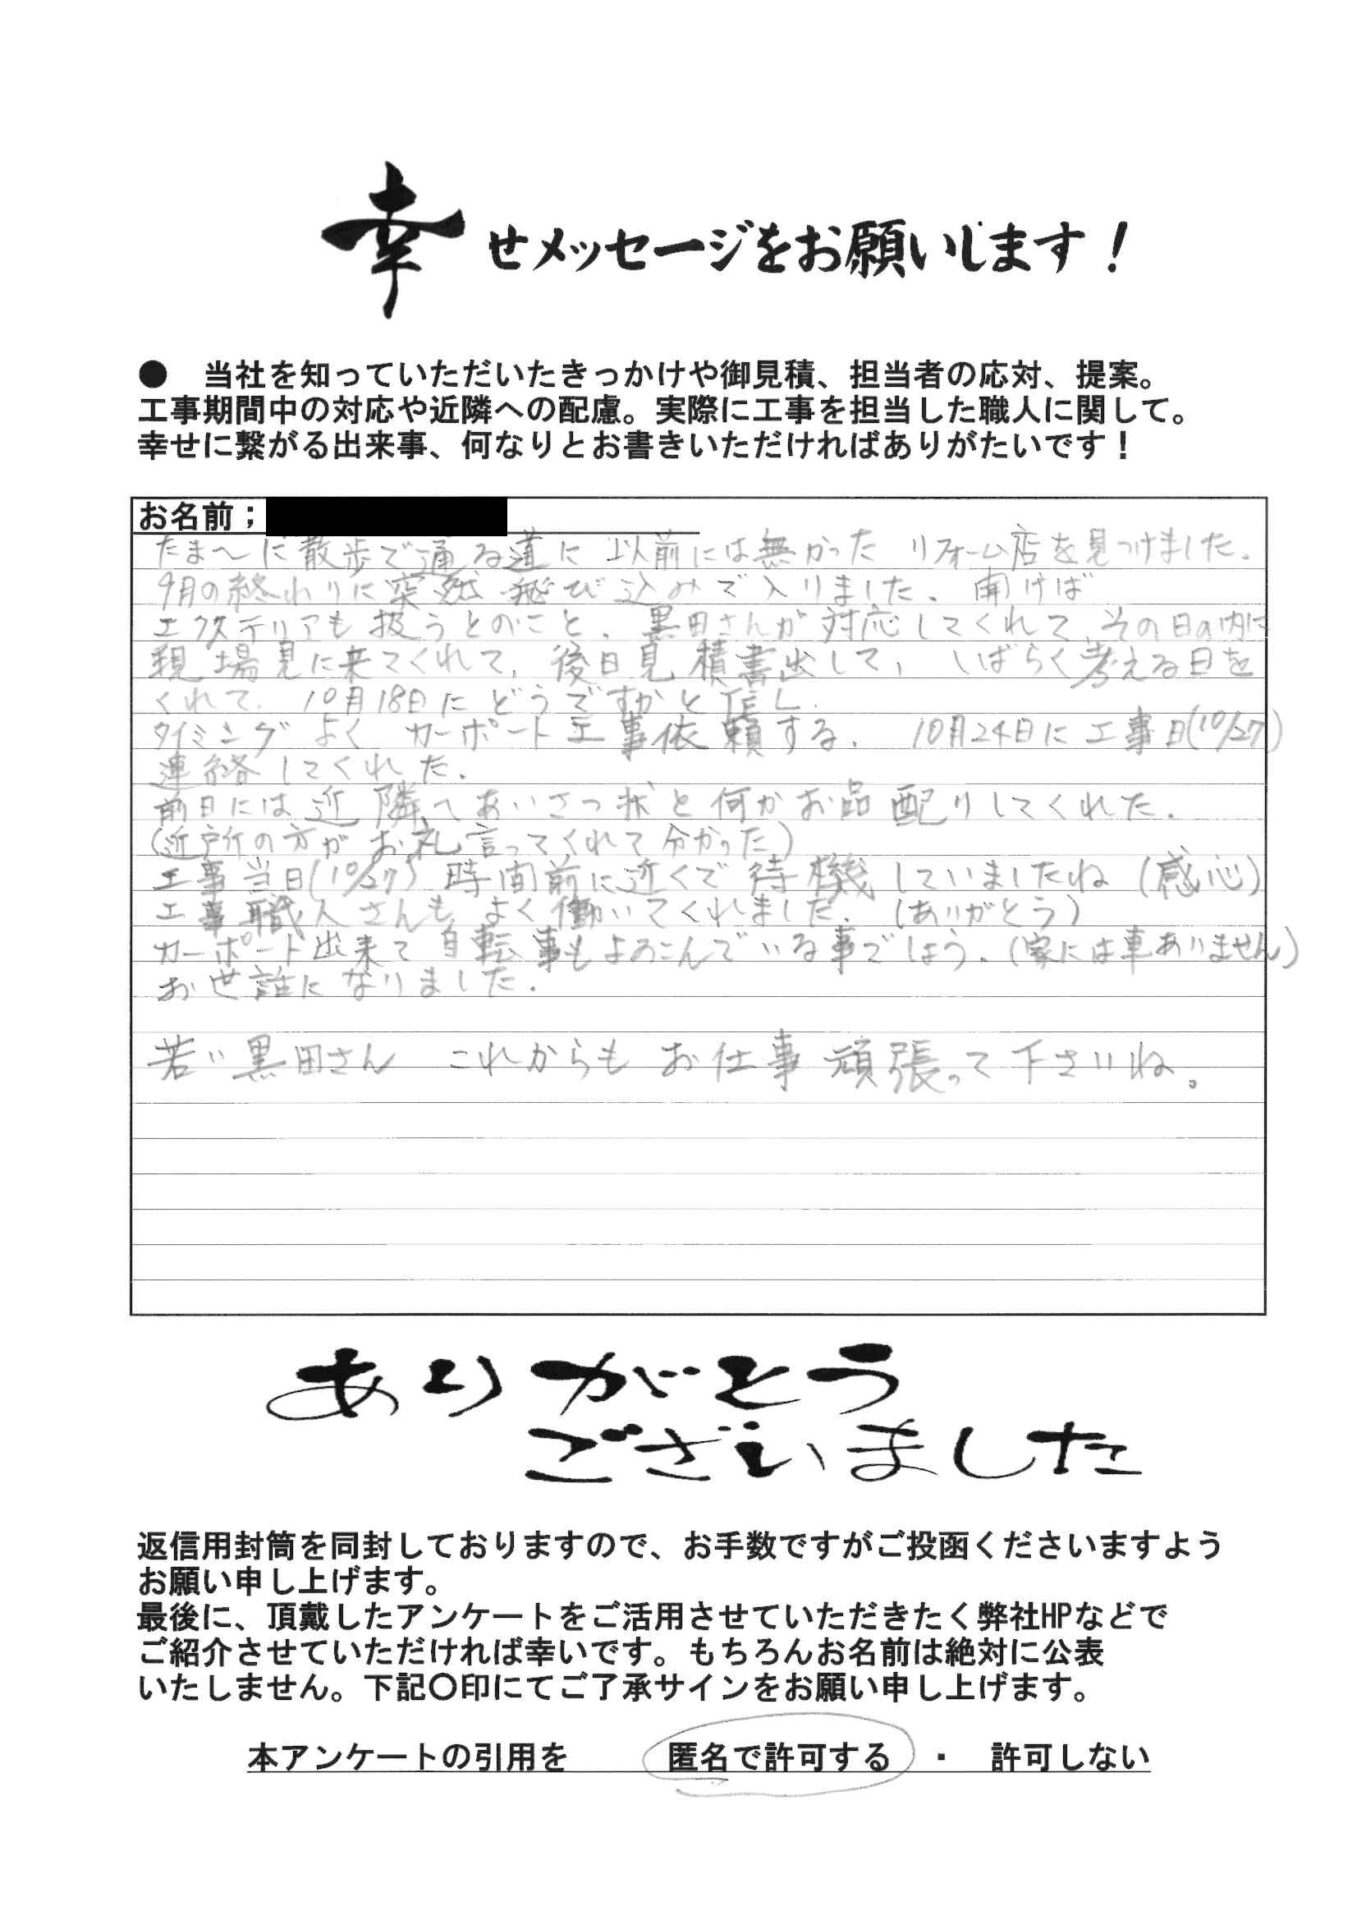 幸せメッセージをお願いします！
●　当社を知っていただいたきっかけや御見積、担当者の応対、提案。
工事期間中の対応や近隣への配慮。実際に工事を担当した職人に関して。
幸せに繋がる出来事、何なりとお書きいただければありがたいです！
お名前；
たま〜に散歩で通る道に以前には無かった リフォーム店を見つけました。
9月の終わりに突然飛び込みで入りました。聞けば
エクステリアも扱うとのこと、黒田さんが対応してくれて、その日の内に
現場見に来てくれて、後日見積書出して、しばらく考える日を
くれて、10月18日にどうですかと
タイミングよく カーポート工事依頼する。 10月24日に工事日(10/27)
連絡してくれた。
前日には近隣へあいさつ状と何かお品配りしてくれた。
(近所の方がお礼言ってくれて分かった)
工事当日(10/27) 時間前に近くで待機していましたね (感心)
工事職人さんもよく働いてくれました。(ありがとう)
カーポート出来て自転車もよろこんでいる事でしょう。(家には車ありません)
お世話になりました。
若い黒田さん これからもお仕事頑張って下さいね。
ありがとう
ございました
返信用封筒を同封しておりますので、お手数ですがご投函くださいますよう
お願い申し上げます。
最後に、頂戴したアンケートをご活用させていただきたく弊社HPなどで
ご紹介させていただければ幸いです。もちろんお名前は絶対に公表
いたしません。下記〇印にてご了承サインをお願い申し上げます。
本アンケートの引用を　　　匿名で許可する　・　許可しない